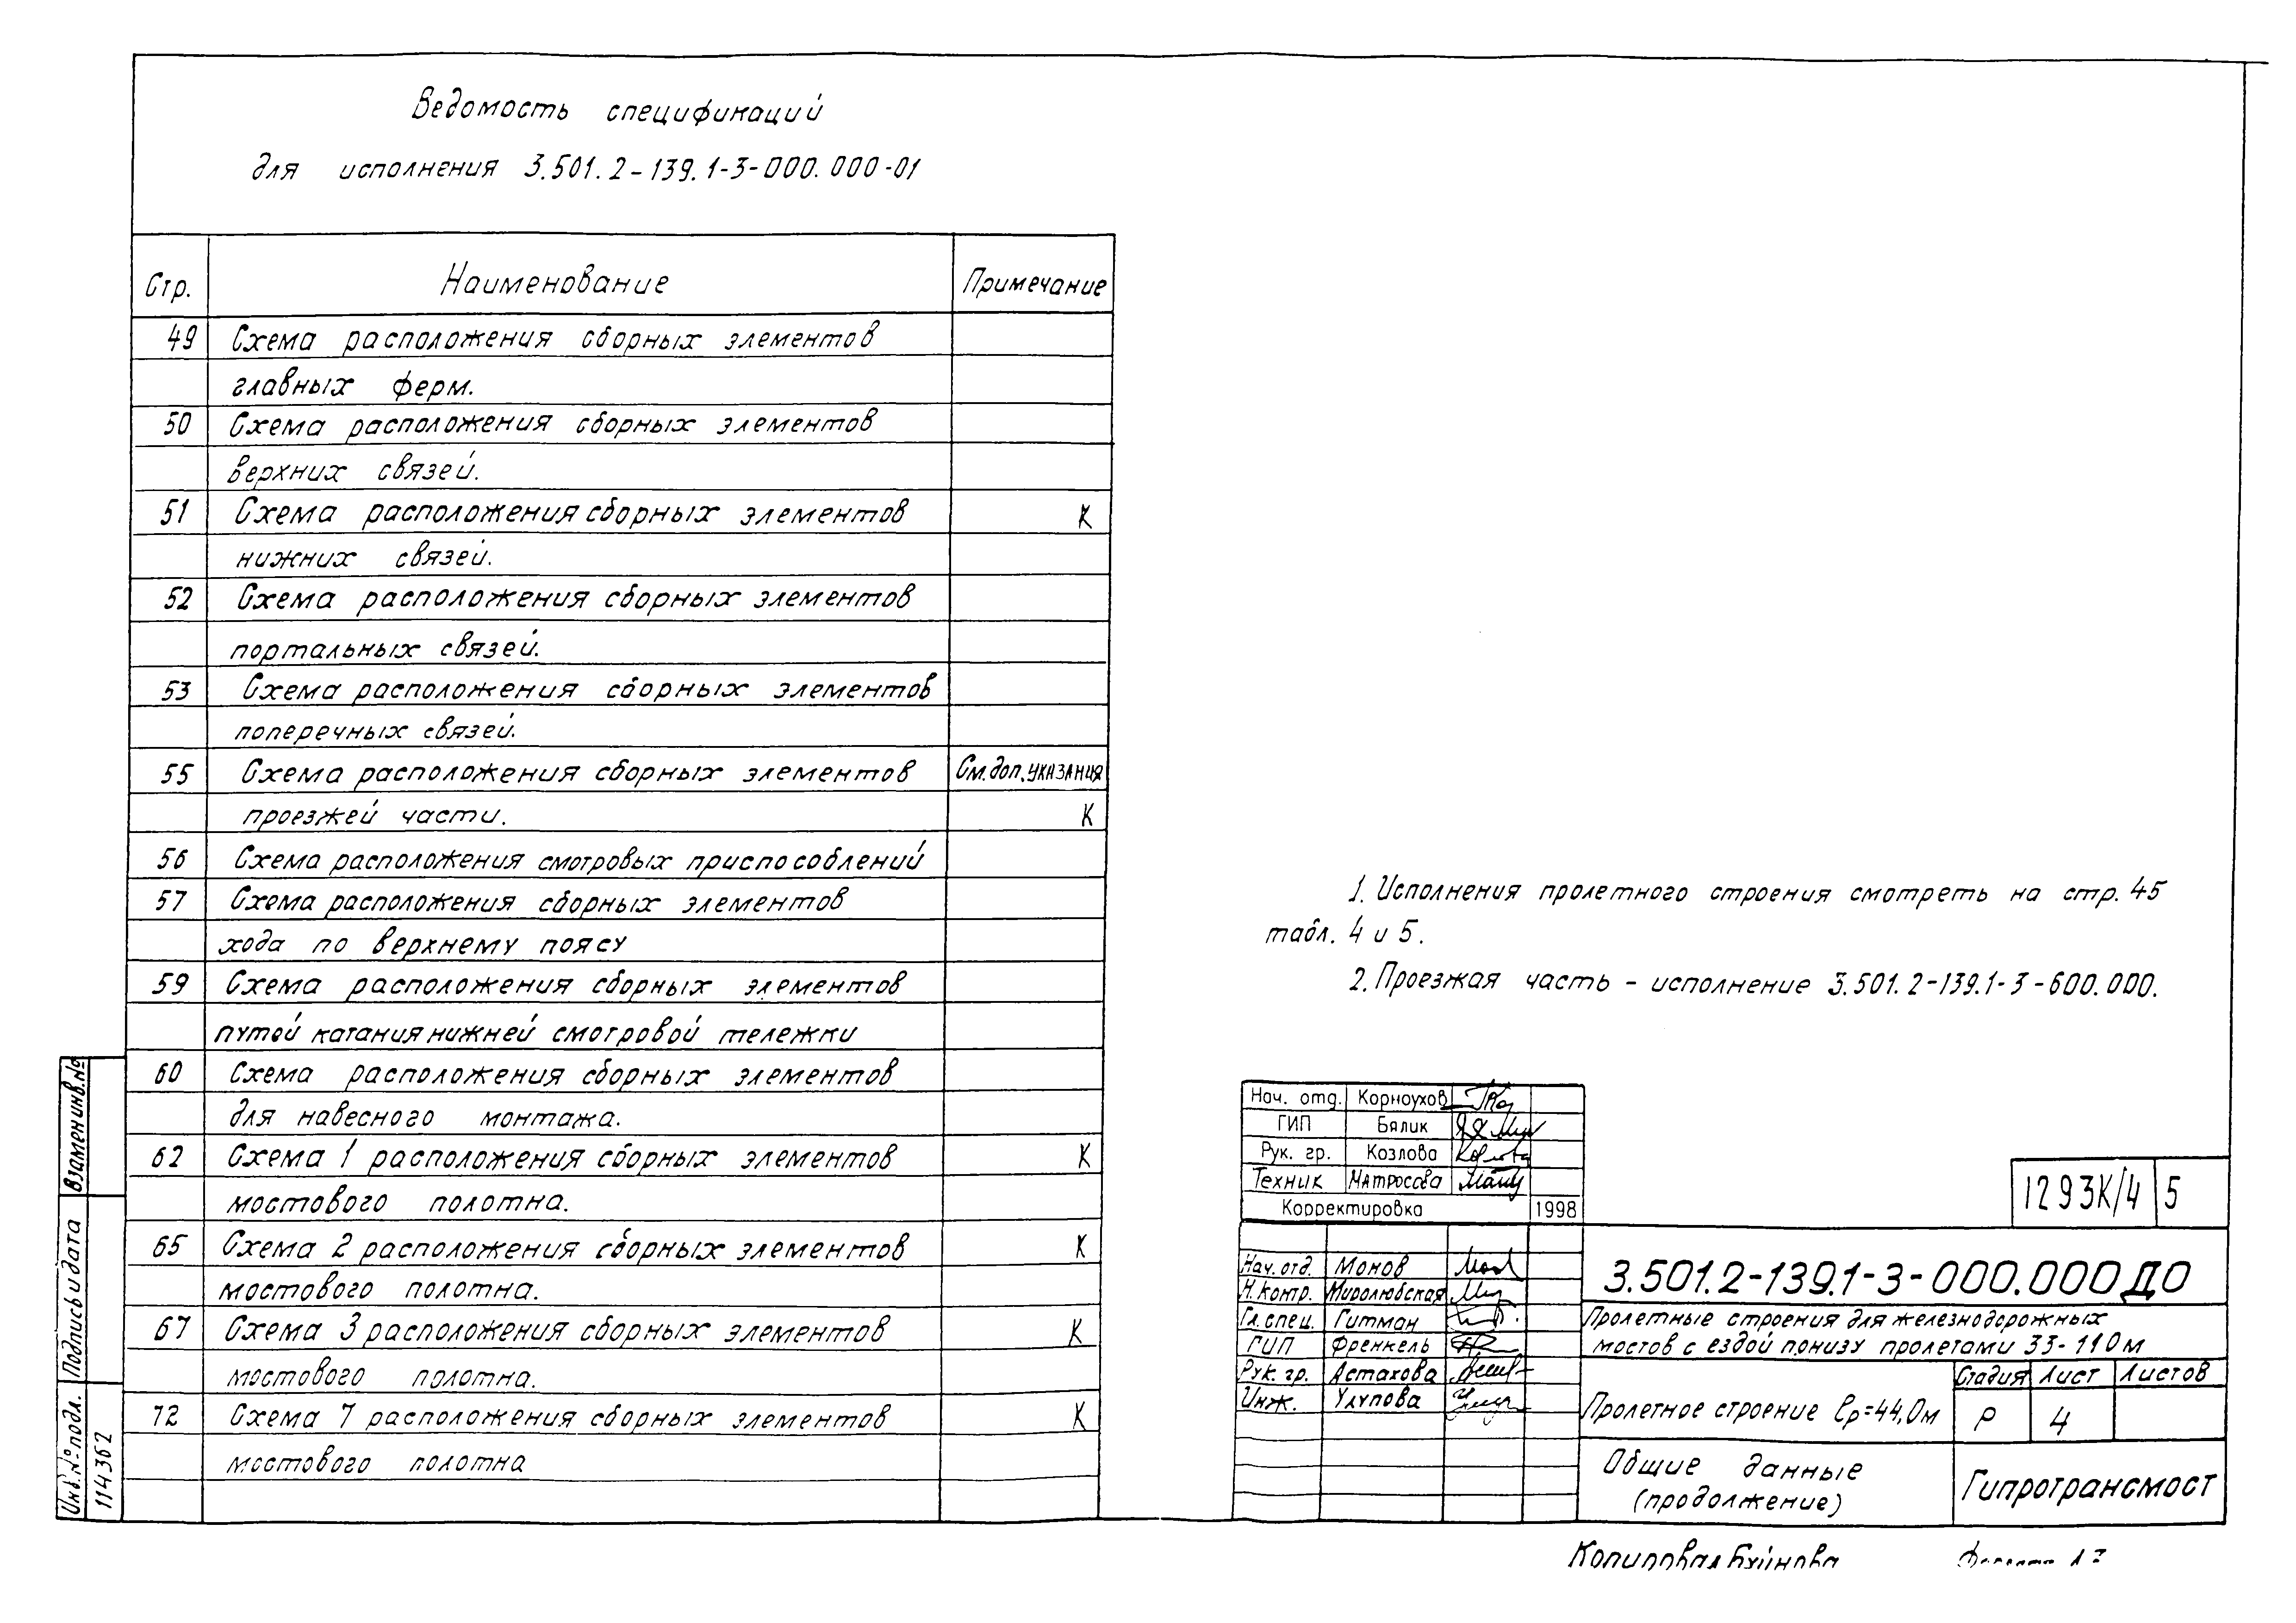 Ведомость спецификаций
для исполнения 3.501.2-139.1-3-000.000-01
Стр. Наименование Примечание
49 Схема расположения сборных элементов
главных ферм.
50 Схема расположения сборных элементов
верхних связей.
51 Схема расположения сборных элементов К
нижних связей.
52 Схема расположения сборных элементов
портальных связей.
53 Схема расположения сборных элементов
поперечных связей.
55 Схема расположения сборных элементов См. доп. указания
проезжей части. К
56 Схема расположения смотровых приспособлений
57 Схема расположения сборных элементов
хода по верхнему поясу
59 Схема расположения сборных элементов
путей катания нижней смотровой тележки
60 Схема расположения сборных элементов
для навесного монтажа.
62 Схема 1 расположения сборных элементов К
мостового полотна.
65 Схема 2 расположения сборных элементов К
мостового полотна.
67 Схема 3 расположения сборных элементов К
мостового полотна.
72 Схема 7 расположения сборных элементов К
мостового полотна
1. Исполнения пролетного строения смотреть на стр. 45
табл. 4 и 5.
2. Проезжая часть - исполнение 3.501.2-139.1-3-600.000.
Нач. отд. Корноухов
ГИП Бялик
Рук. гр. Козлова
Техник Матросова
Корректировка 1998
1293К/4 5
Нач. отд. Монов
Н. контр. Миролюбская
Гл. спец. Гитман
ГИП Френкель
Рук. гр. Астахова
Инж. Улупова
3.501.2-139.1-3-000.000 ДО
Пролетные строения для железнодорожных
мостов с ездой понизу пролетами 33-110 м
Пролетное строение ℓр=44,0м
Стадия Лист Листов
Р 4
Общие данные
(продолжение)
Гипротрансмост
Взамен инв.№
Подпись и дата
Инв.№ подл.
114362
Копировал